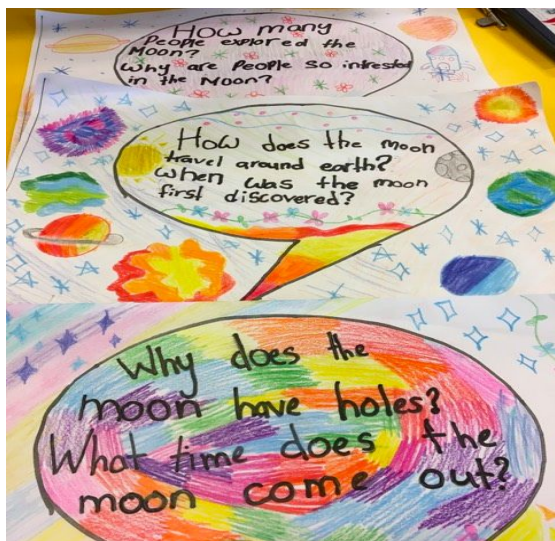 How many
People explored the
Moon?
Why are People so intrested
in the Moon?
How does the moon
travel around earth?
When was the moon
first discovered?
Why does the
moon have holes?
What time does the
moon come out?